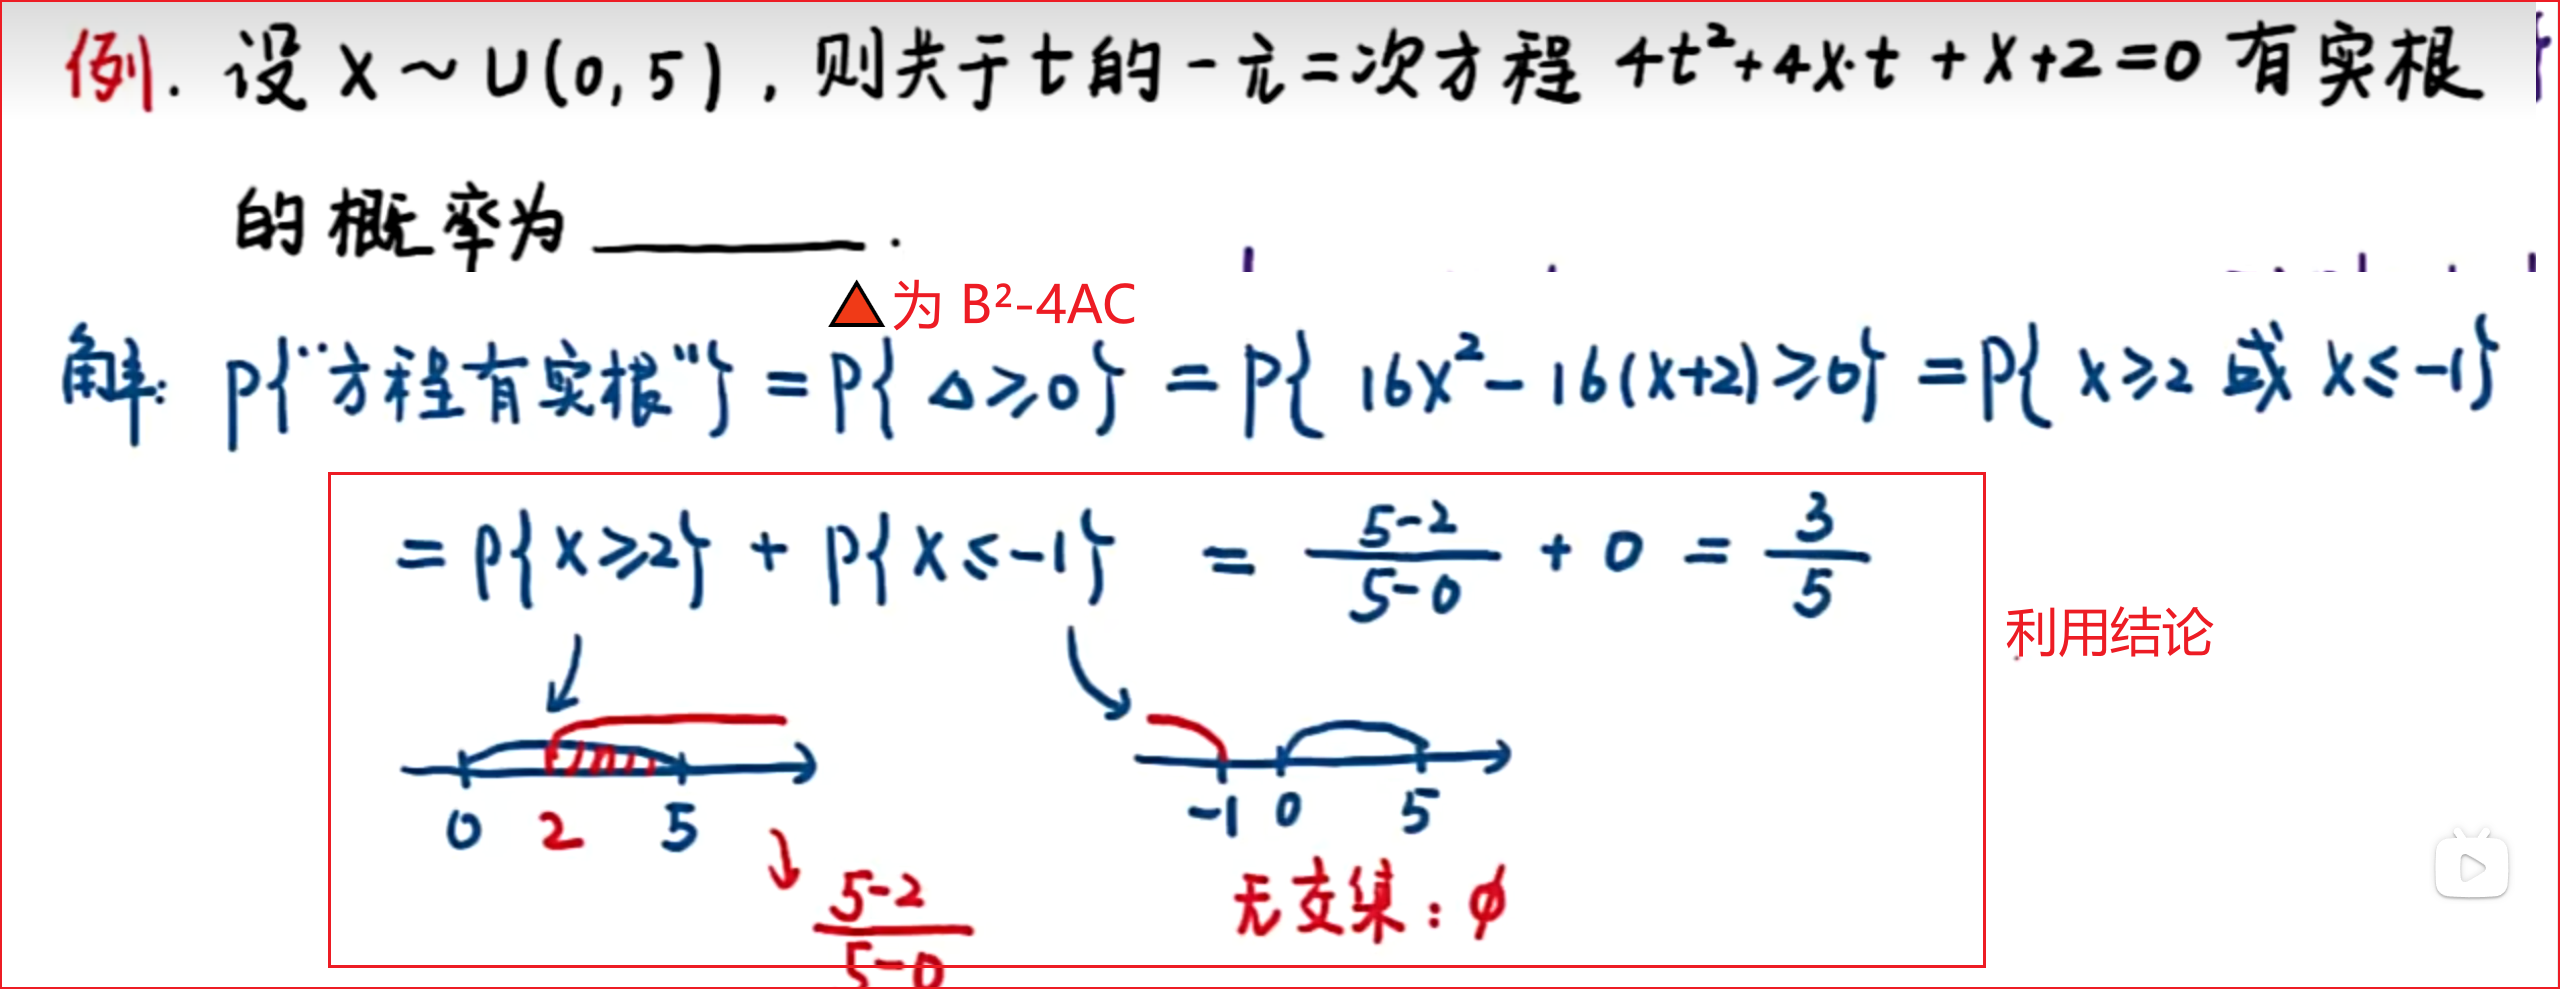 例. 设 X ~ U(0, 5), 则关于 t 的一元二次方程 4t²+4X·t+X+2=0 有实根
的概率为 ________.
为 B²-4AC
解: P{"方程有实根"} = P{Δ≥0} = P{16X²-16(X+2)≥0} = P{X≥2 或 X≤-1}
= P{X≥2} + P{X≤-1} = (5-2)/(5-0) + 0 = 3/5
利用结论
0 2 5
-1 0 5
(5-2)/(5-0)
无交集: φ